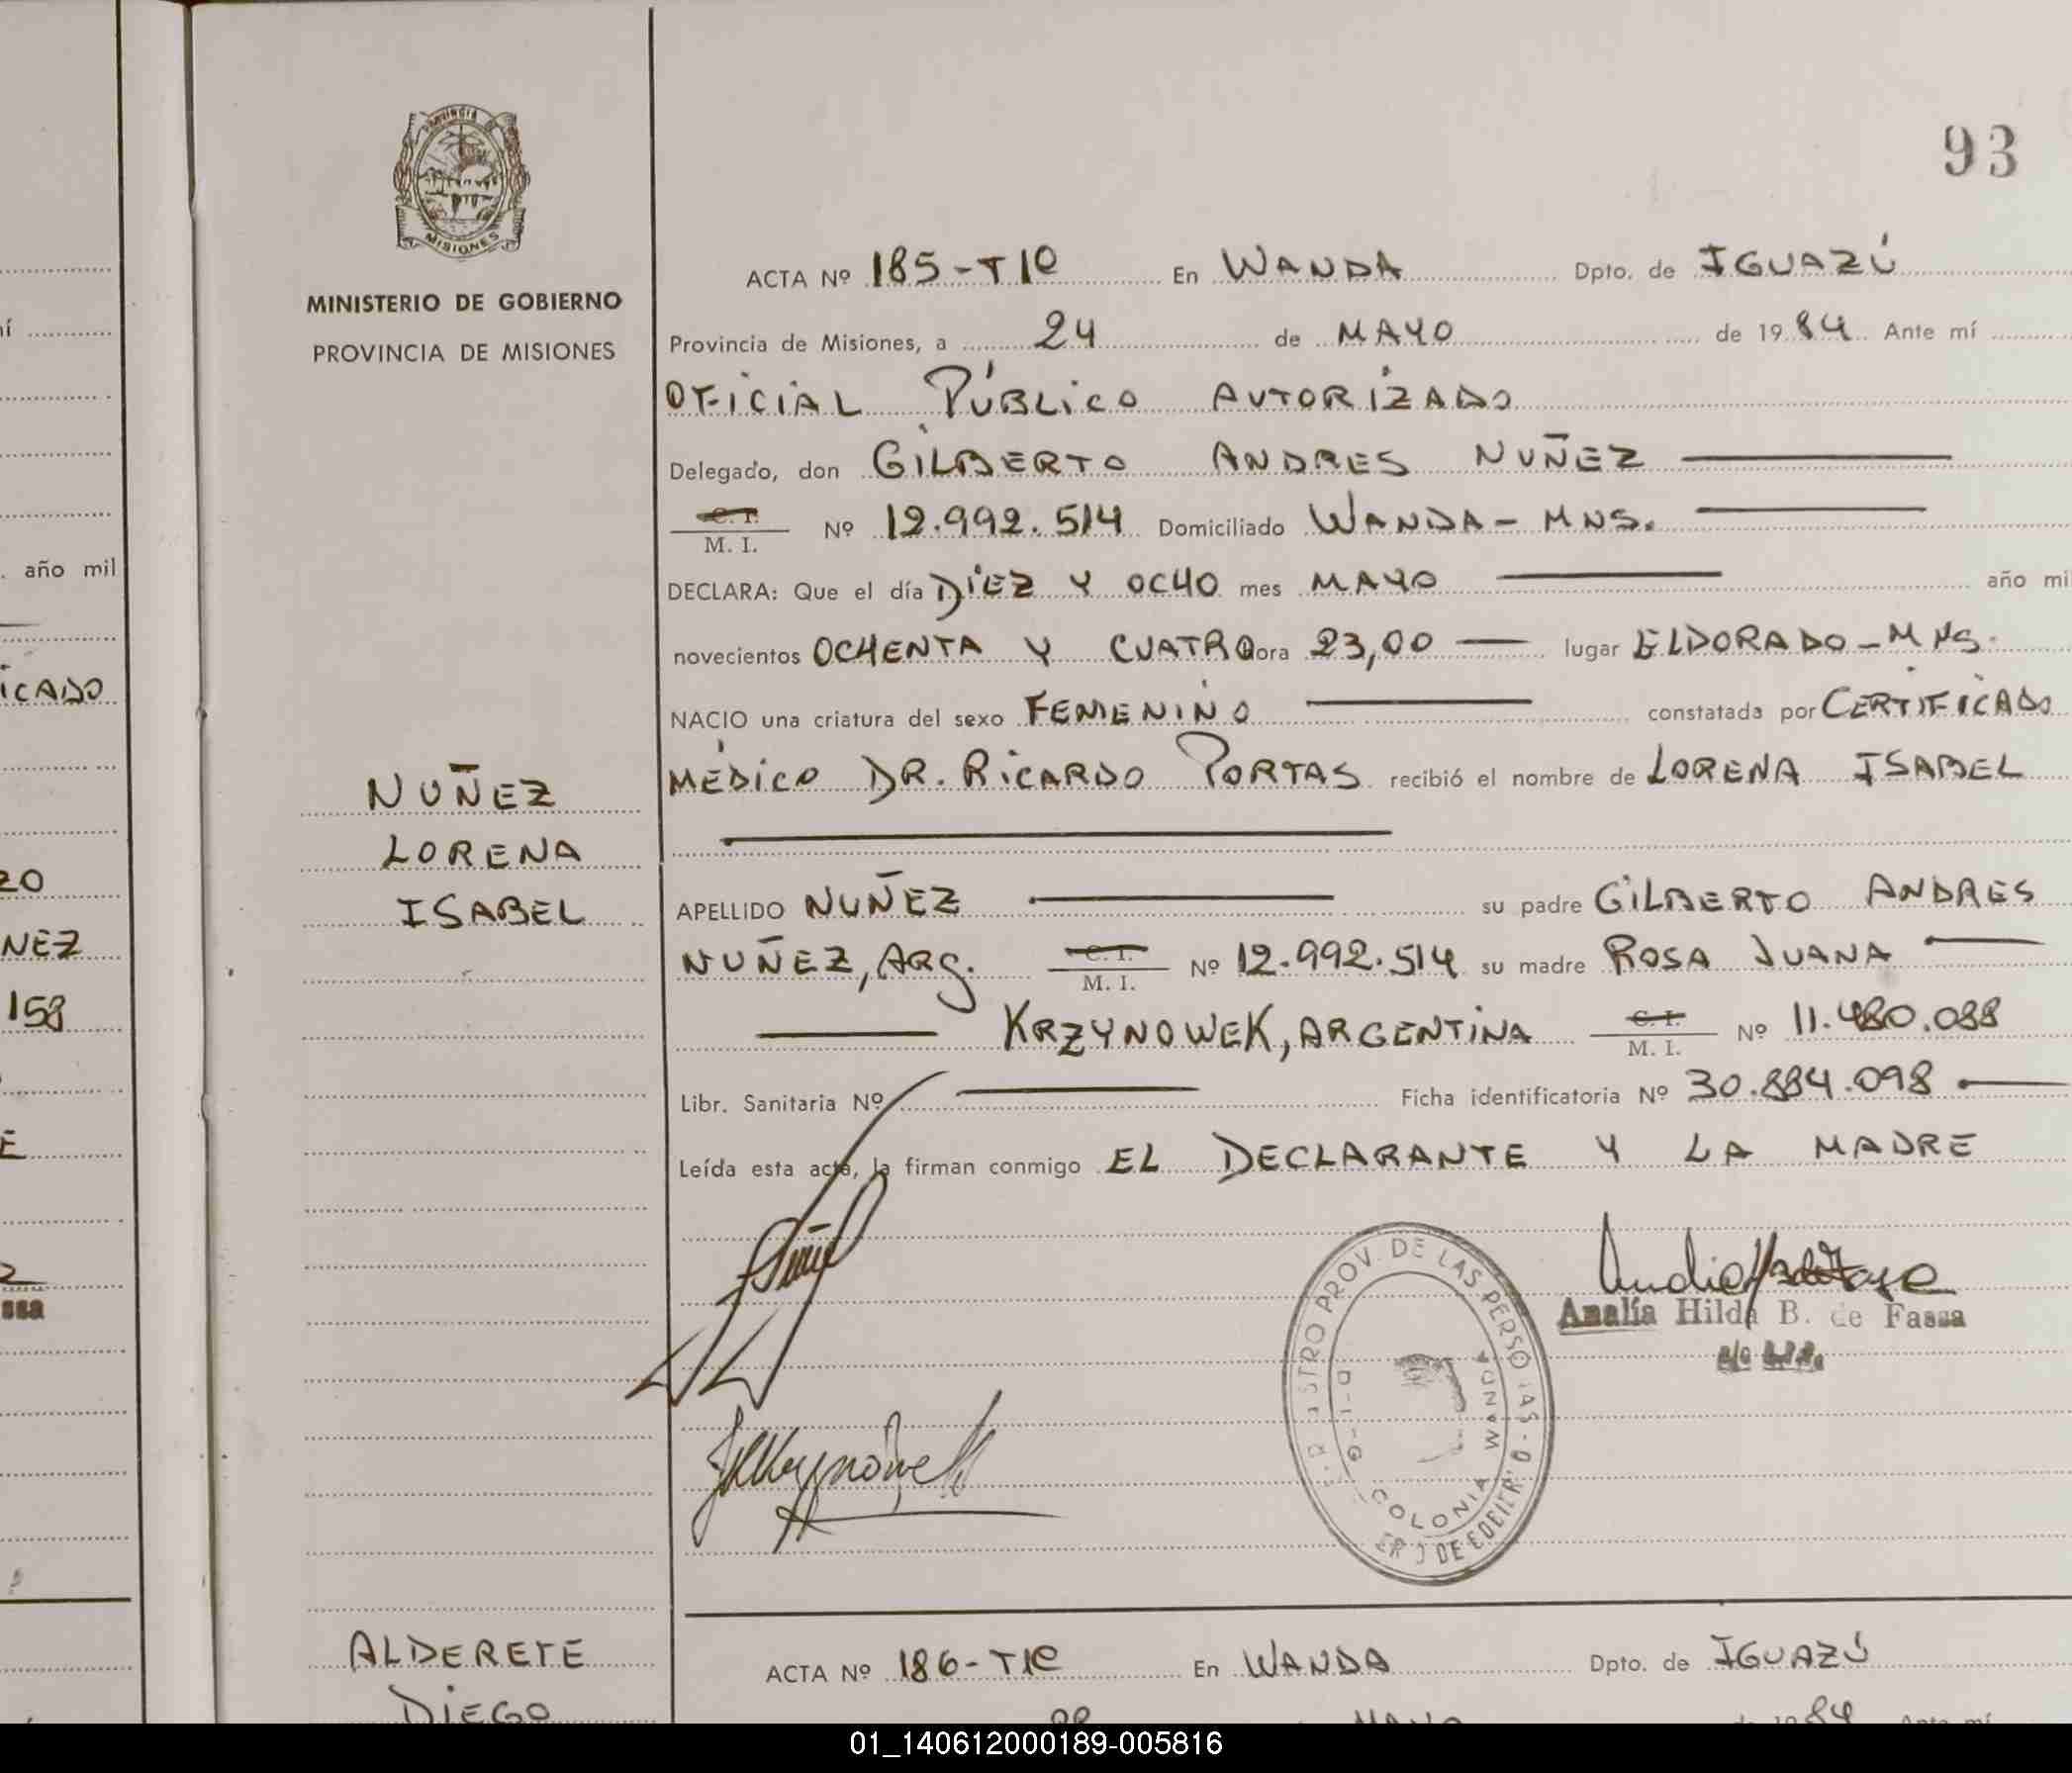 PROVINCIA DE
MISIONES
MINISTERIO DE GOBIERNO
PROVINCIA DE MISIONES
93
ACTA Nº 185-T1º En WANDA Dpto. de IGUAZÚ
Provincia de Misiones, a 24 de MAYO de 1984 Ante mí
OFICIAL PÚBLICO AUTORIZADO
Delegado, don GILBERTO ANDRES NUÑEZ
C. I.
M. I. Nº 12.992.514 Domiciliado WANDA-MNS.
DECLARA: Que el día DIEZ Y OCHO mes MAYO año mi
novecientos OCHENTA Y CUATRO ora 23,00 lugar ELDORADO-MNS.
NACIO una criatura del sexo FEMENINO constatada por CERTIFICADO
MÉDICO DR. RICARDO PORTAS recibió el nombre de LORENA ISABEL
NUÑEZ
LORENA
ISABEL
APELLIDO NUÑEZ su padre GILBERTO ANDRES
NUÑEZ, ARG. C. I. M. I. Nº 12.992.514 su madre ROSA JUANA
KRZYNOWEK, ARGENTINA C. I. M. I. Nº 11.480.088
Libr. Sanitaria Nº Ficha identificatoria Nº 30.884.098
Leída esta acta, la firman conmigo EL DECLARANTE Y LA MADRE
Analía Hilda B. de Fassa
PROV. DE LAS PERSO
COLONIA WANDA
ALDERETE
DIEGO
ACTA Nº 186-T1º En WANDA Dpto. de IGUAZÚ
MAYO 1984 Ante mí
año mil
ICADO
ZO
NEZ
158
01_140612000189-005816